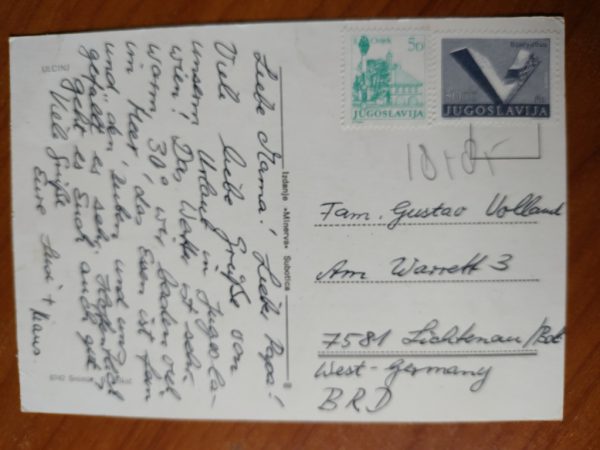 ULCINJ
Liebe Mama! Liebe Papa!
Viele liebe Grüße von
unserm Urlaub in Jugosla-
wien! Das Wetter ist sehr
warm 30° wir baden viel
im Meer, das Essen ist
und und uns
gefällt es sehr. Hoffentlich
geht es Euch auch gut
Viele Grüße
Eure + Klaus.
Izdanje »Minerva« Subotica
8
50
JUGOSLAVIJA
JUGOSLAVIJA
Fam. Gustav Volland
Am Warrett 3
7581 Lichtenau/Bad
West-Germany
BRD